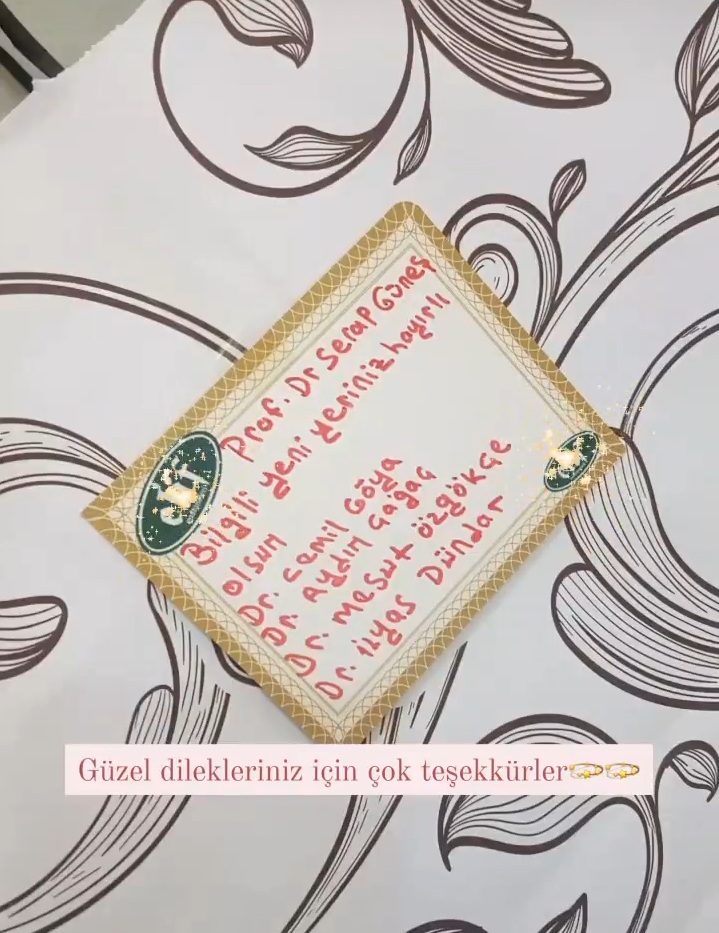 Prof. Dr Serap Güneş
Bilgili yeni yeriniz hayırlı
olsun
Dr. Cemil Göya
Dr. Aydın Gağaç
Dr. Mesut özgökçe
Dr. ilyas Dündar
Güzel dilekleriniz için çok teşekkürler💫💫